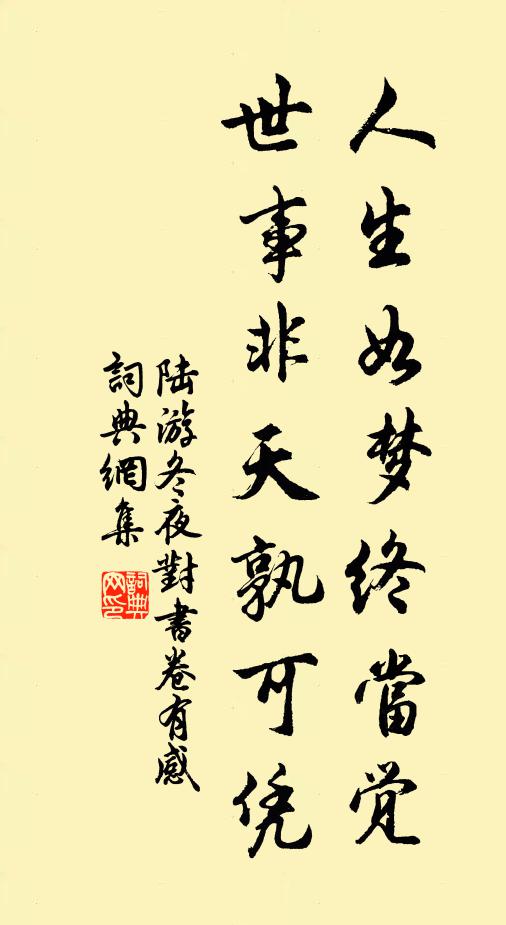 人生如梦终當觉
世事非天孰可凭
陆游冬夜對書卷有感
詞典網集
詞典网印